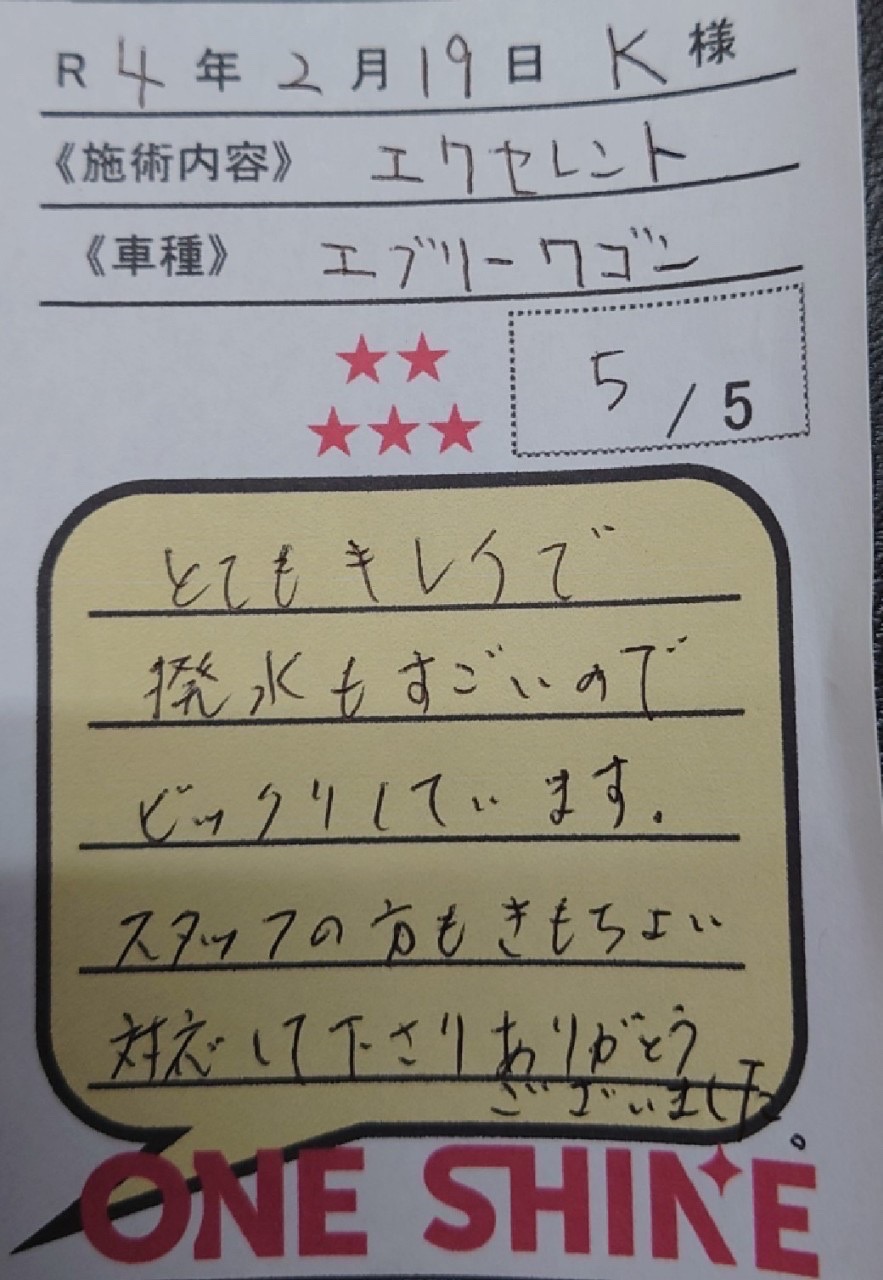 R 4 年 2 月 19 日 K 様
《施術内容》 エクセレント
《車種》 エブリーワゴン
★★
★★★
5 / 5
とてもキレイで
撥水もすごいので
ビックリしています.
スタッフの方もきもちよい
対応して下さりありがとう
ございました。
ONE SHINE